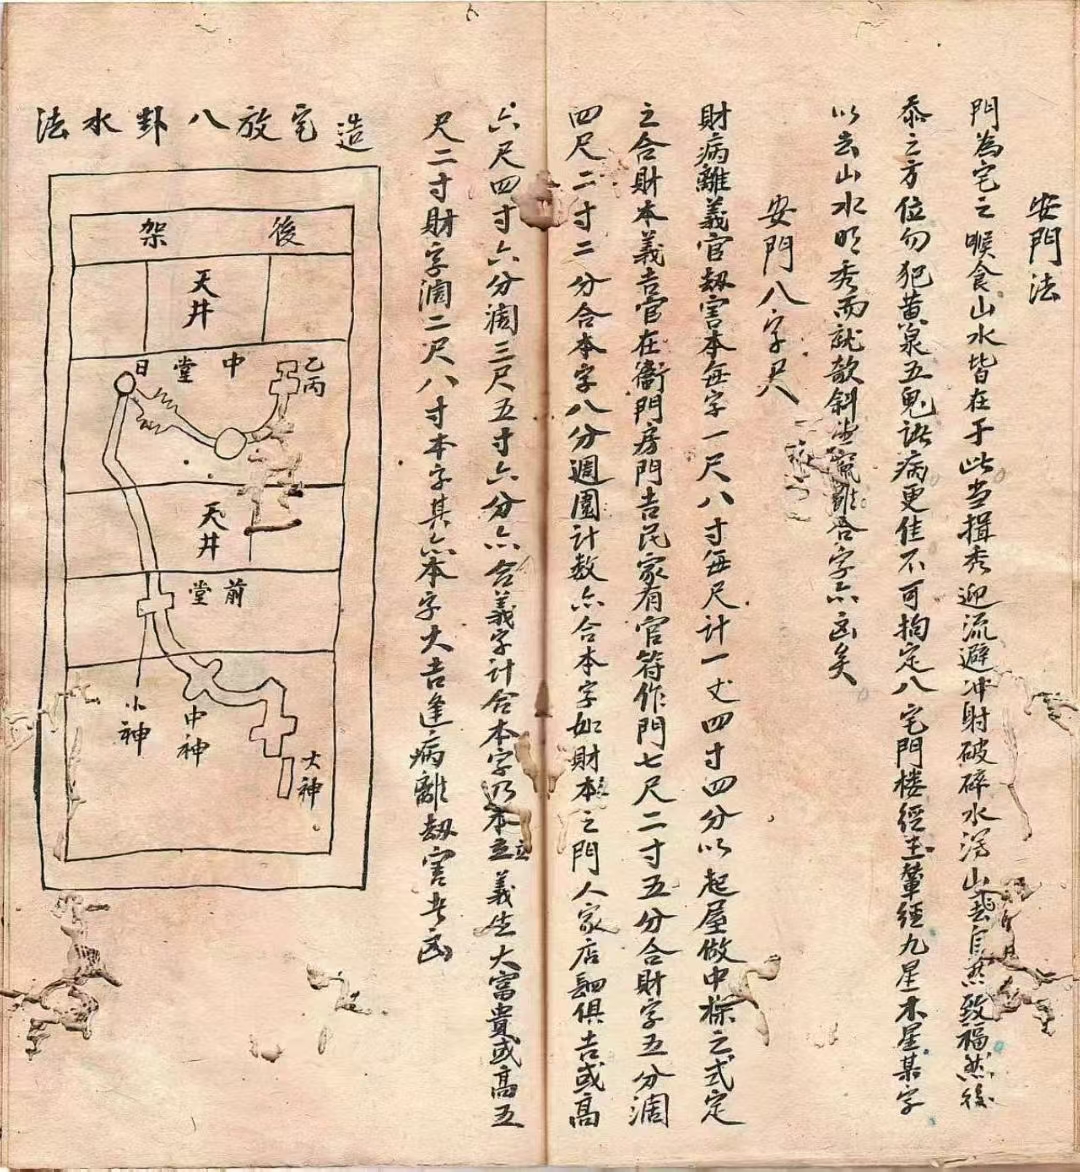 安門法
門為宅之喉食山水皆在于此当揖秀迎流避冲射破碎水滘山飛自然致福然後
泰之方位勿犯黄泉五鬼訛病更佳不可拘定八宅門楼經玉輦經九星木星某字
以去山水明秀而就歆斜
合字亦凶矣
安門八字尺
財病離義官刼害本每字一尺八寸每尺計一丈四寸四分以起屋做中樑之式定
之合財本義吉官在衙門房門吉民家有官符作門七尺二寸五分合財字五分濶
四尺二寸二分合本字八分週圍計数亦合本字如財本之門人家店面俱吉或高
六尺四寸六分濶三尺五寸六分亦合義字計合本字乃本立義生大富貴或高五
尺二寸財字濶二尺八寸本字其亦本字大吉逢病離刼害者凶
造宅放八卦水法
後架
天井
中堂
乙丙
日
天井
前堂
小神
中神
大神